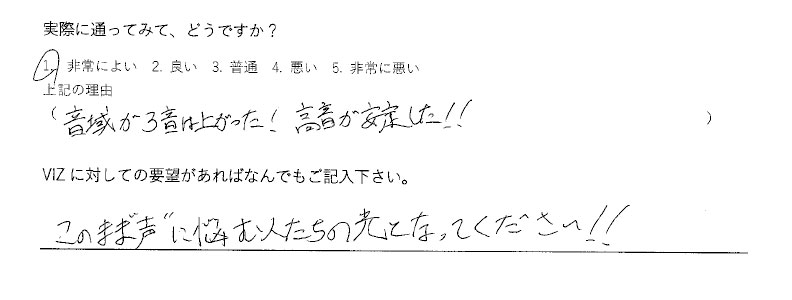 実際に通ってみて、どうですか？
1. 非常によい 2. 良い 3. 普通 4. 悪い 5. 非常に悪い
上記の理由
（音域が3音は上がった！ 高音が安定した!!）
VIZ に対しての要望があればなんでもご記入下さい。
このまま"声"に悩む人たちの光となってください!!